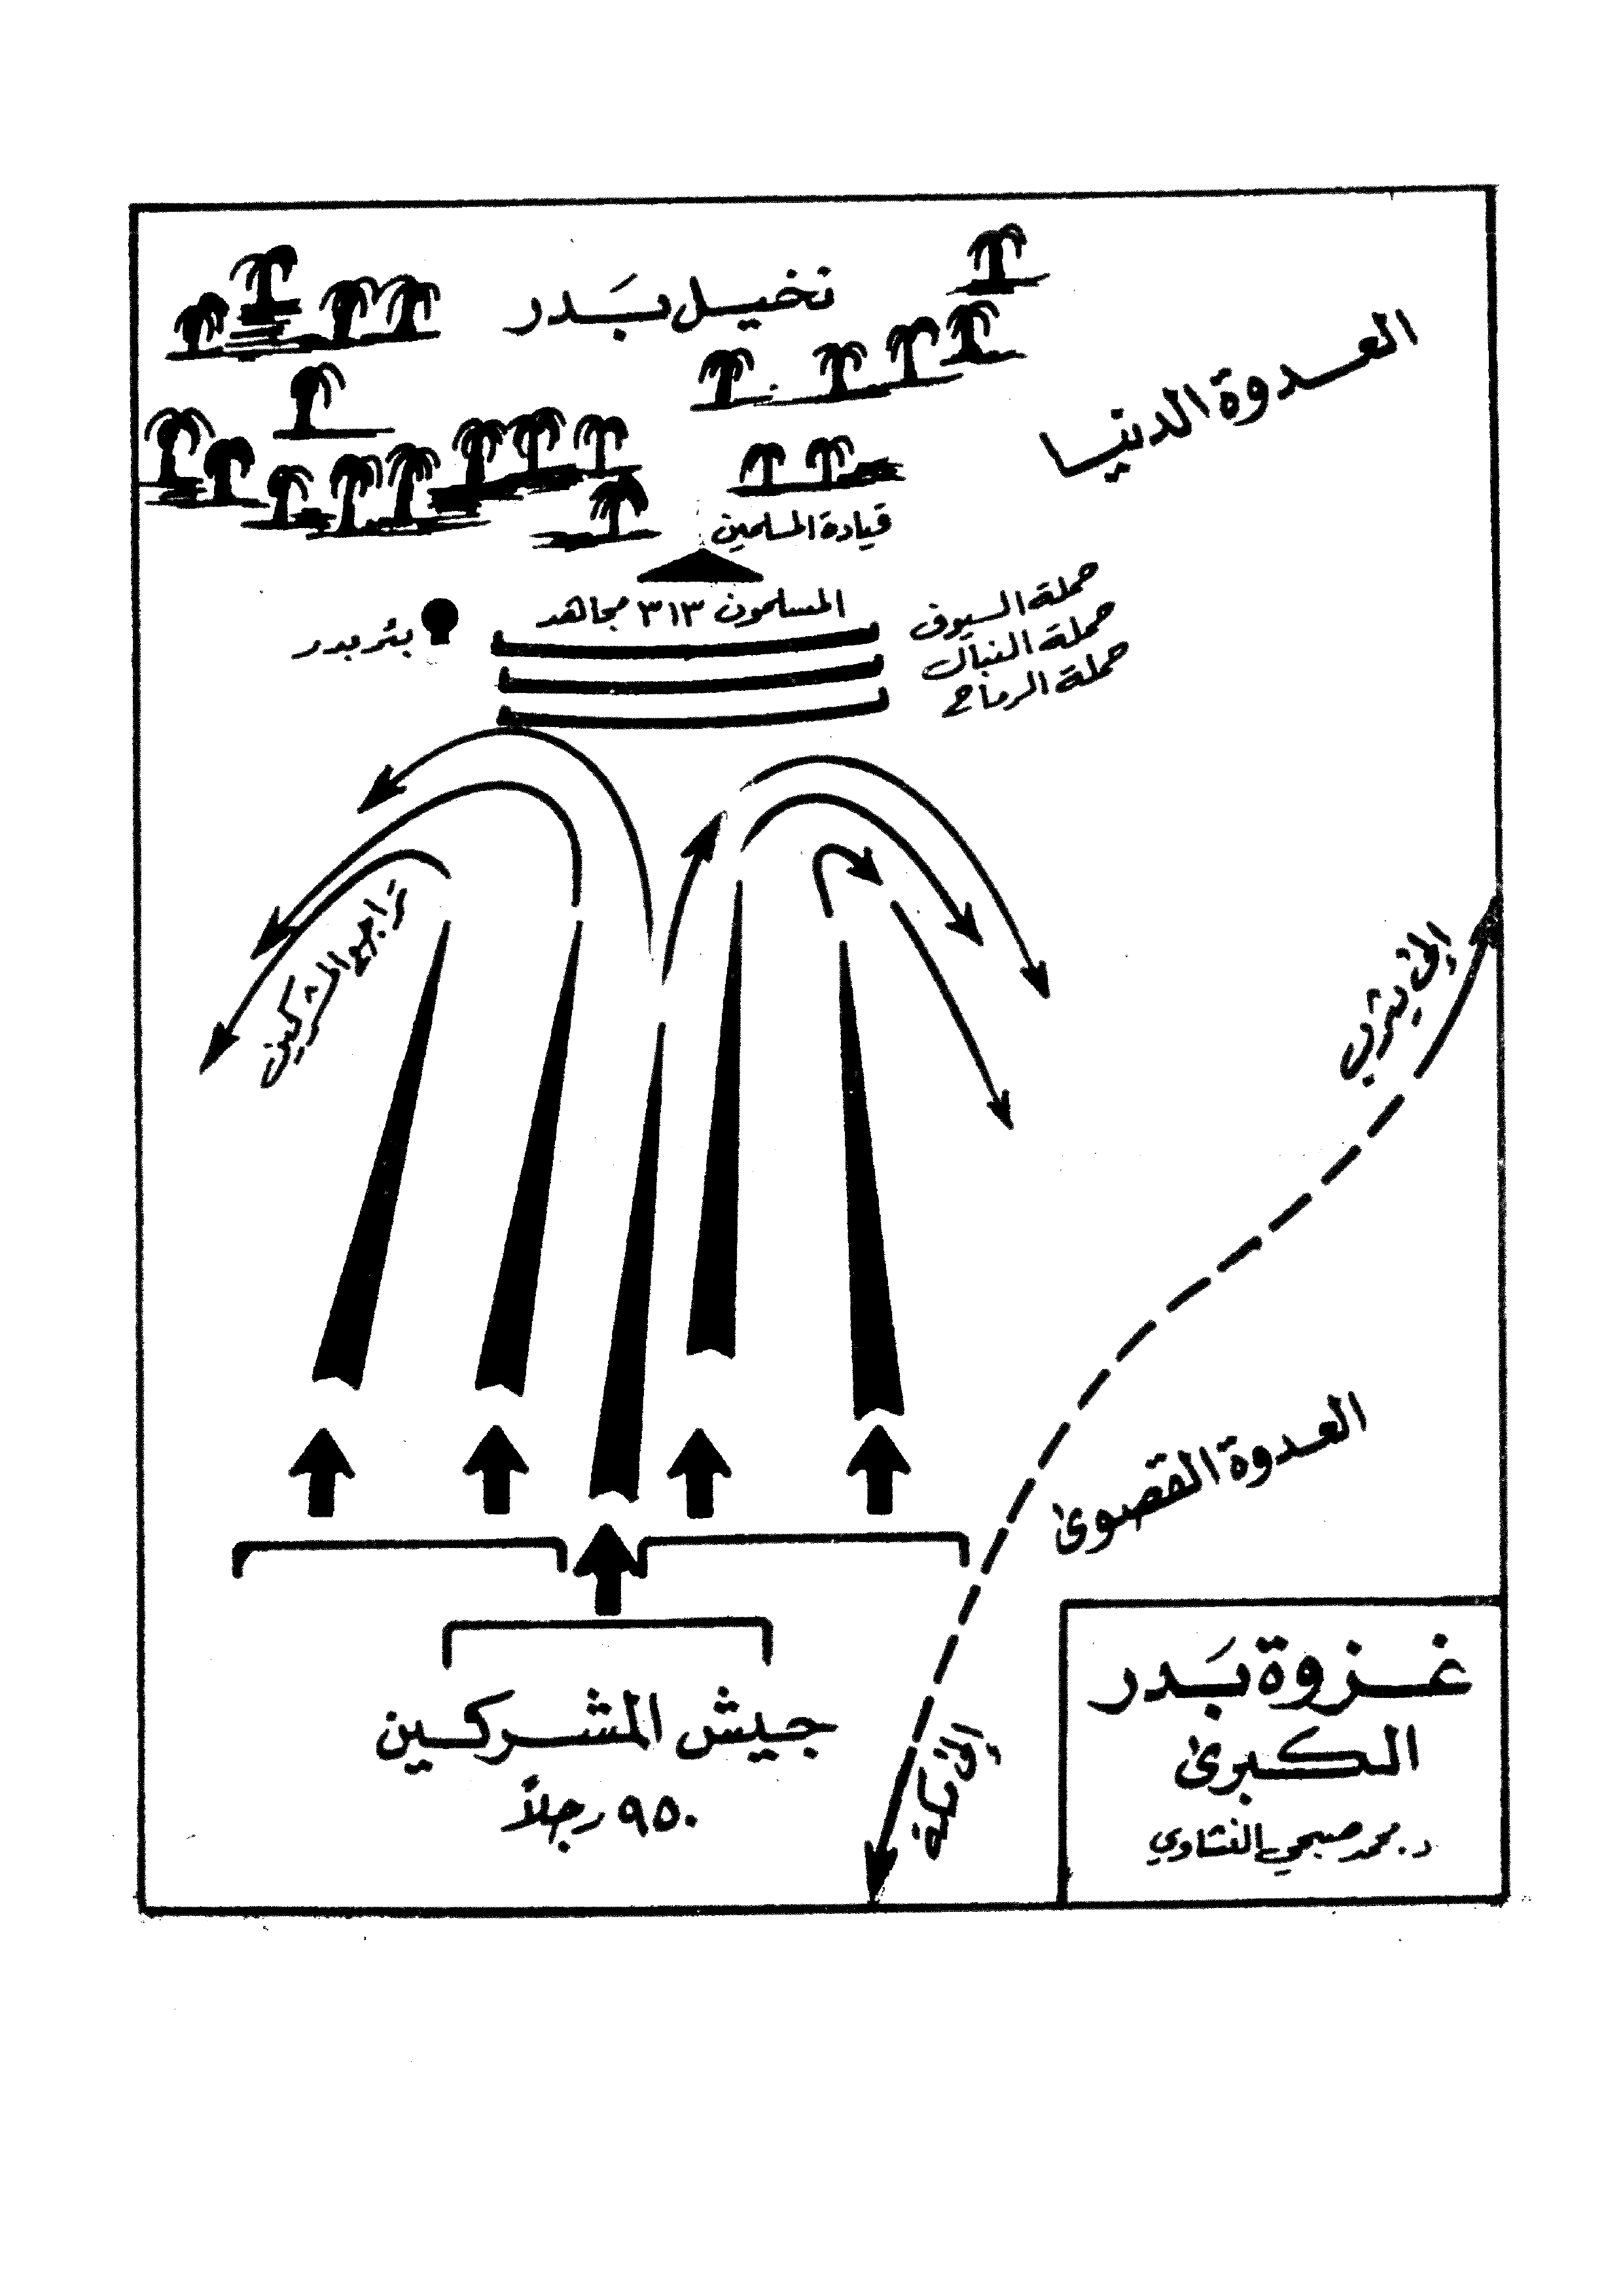 نخيل بَدر
العدوة الدنيا
قيادة المسلمين
المسلمون ٣١٣ مجاهد
بئر بدر
حملة السيوف
حملة النبال
حملة الرماح
تراجع المشركين
إلى يثرب
العدوة القصوى
جيش المشركين
٩٥٠ رجلاً
إلى مكة
غزوة بَدر
الكبرى
د. محمد صبحي الغشاوي